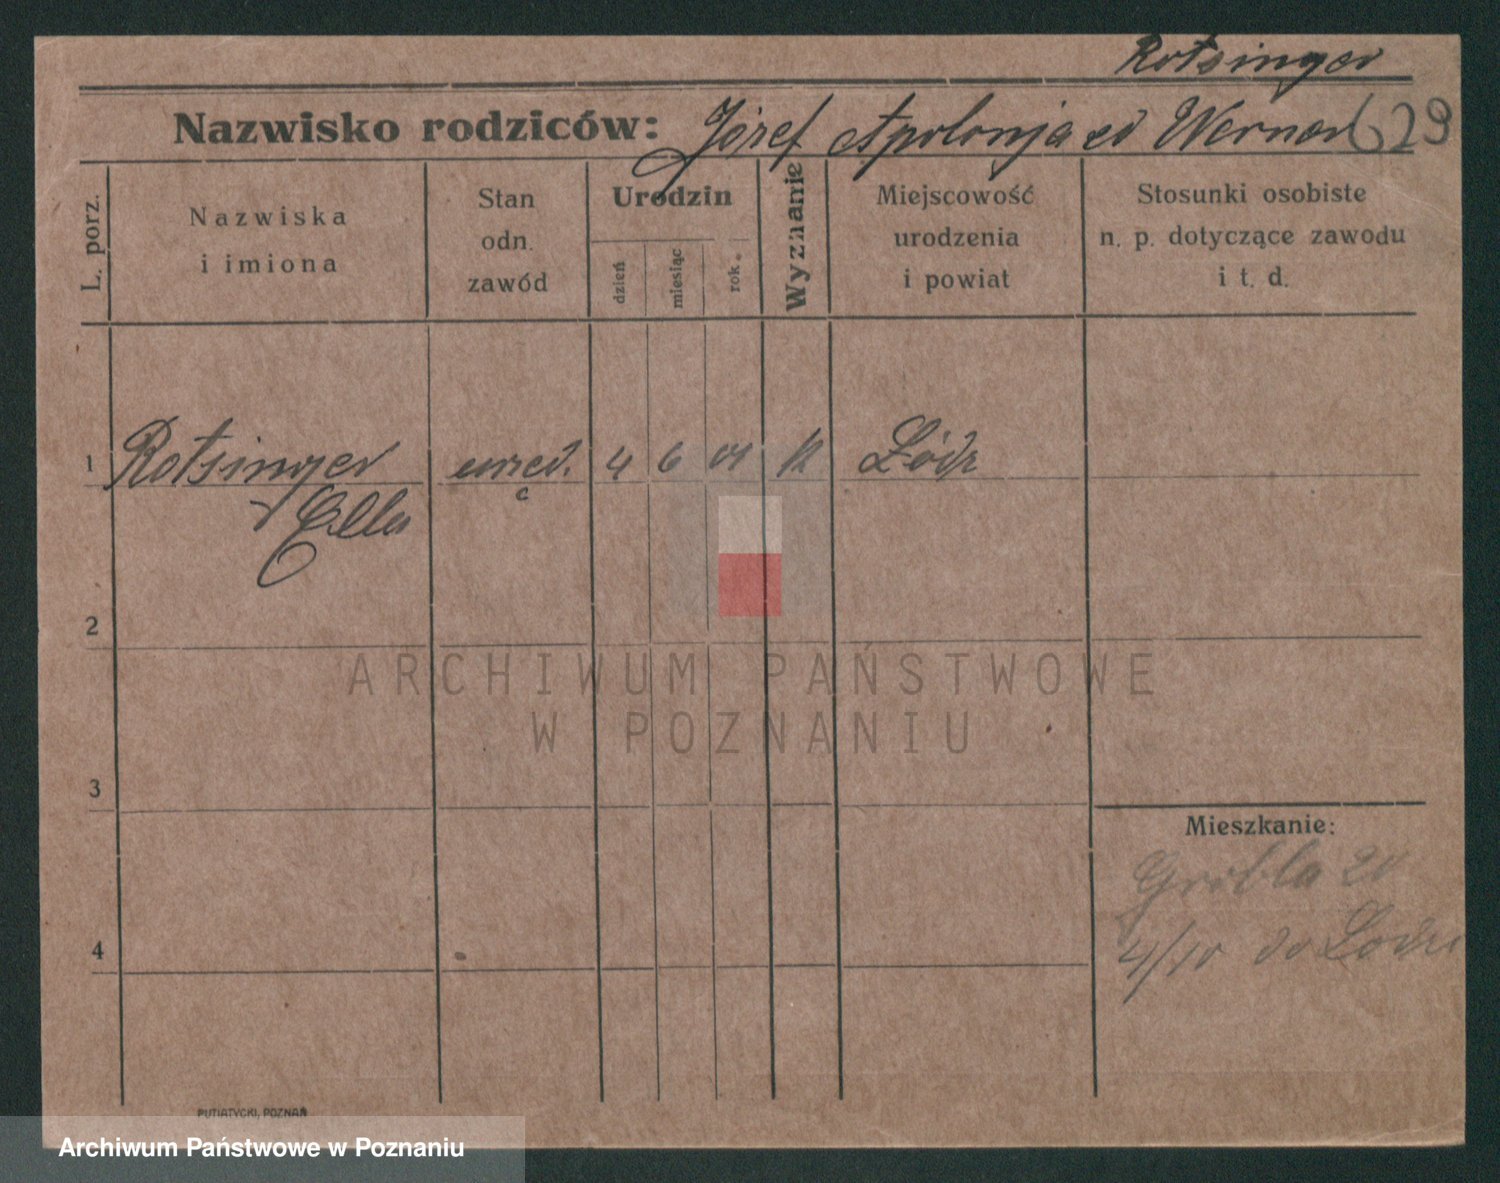 Rotsinger
Nazwisko rodziców: Józef Apolonja zd Werner 629
L. porz.
Nazwiska
i imiona
Stan
odn.
zawód
Urodzin
dzień
miesiąc
rok
Wyznanie
Miejscowość
urodzenia
i powiat
Stosunki osobiste
n. p. dotyczące zawodu
i t. d.
1 Rotsinger 4 6 Łódź
Ella
2
ARCHIWUM PAŃSTWOWE
W POZNANIU
3
Mieszkanie:
Grobla
4
4/10 do Łodzi
PUTIATYCKI, POZNAŃ
Archiwum Państwowe w Poznaniu